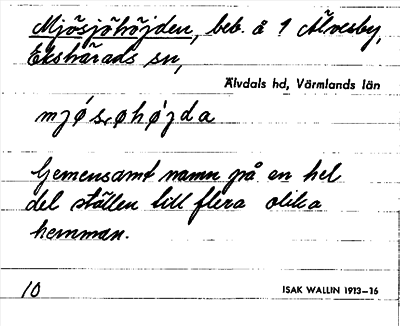 Mjösjöhöjden, beb. å 1 Älvesby,
Ekshärads sn,
Älvdals hd, Värmlands län
mjǿsøhǿjda
Gemensamt namn på en hel
del ställen till flera olika
hemman.
10
ISAK WALLIN 1913-16